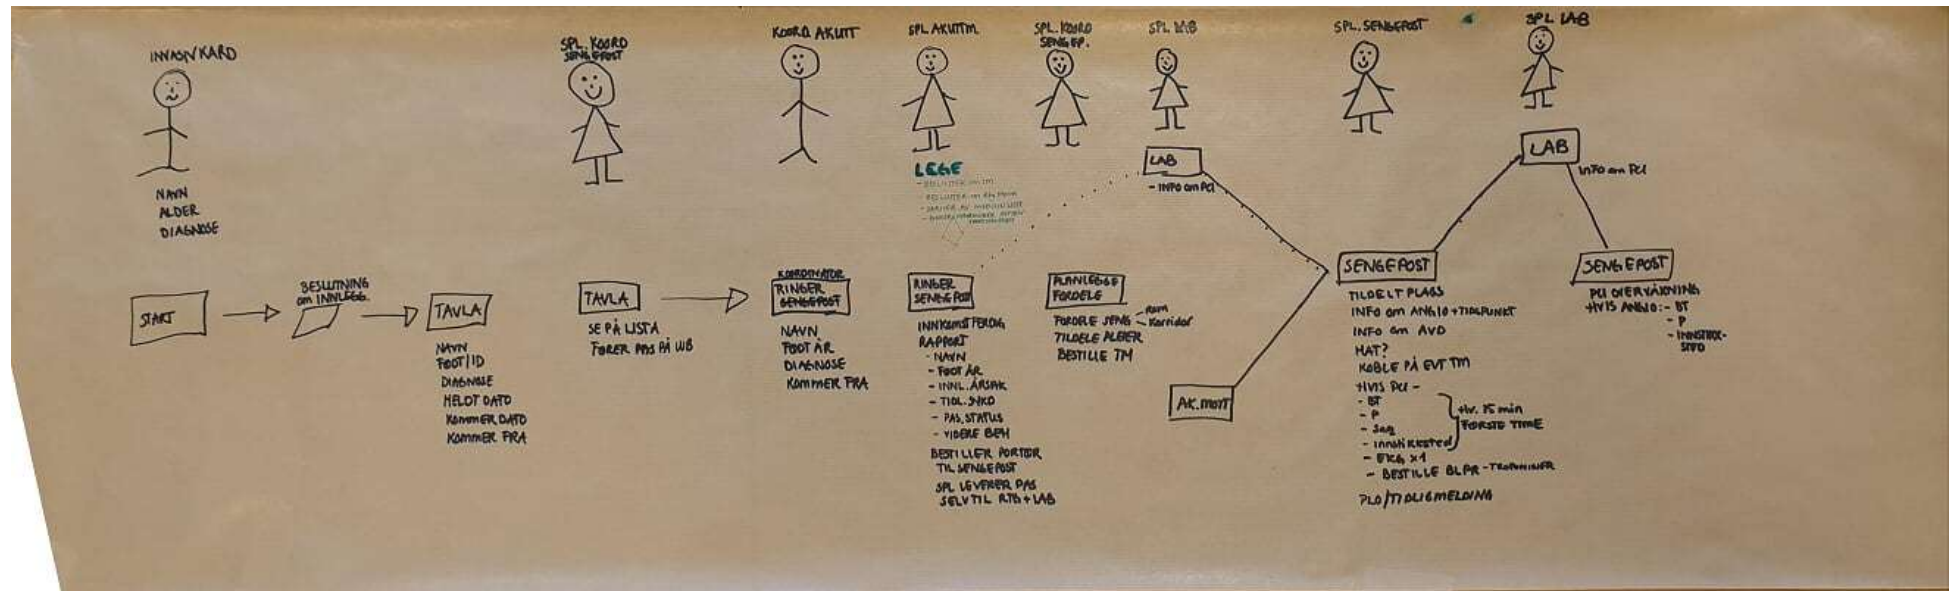 INVASIV KARD
NAVN
ALDER
DIAGNOSE
START
BESLUTNING
om INNLEGG.
TAVLA
NAVN
FØDT/ID
DIAGNOSE
MELDT DATO
KOMMER DATO
KOMMER FRA
SPL. KOORD
SENGEPOST
TAVLA
SE PÅ LISTA
FØRER PAS PÅ WB
KOORD. AKUTT
KOORDINATOR
RINGER
SENGEPOST
NAVN
FØDT ÅR
DIAGNOSE
KOMMER FRA
SPL AKUTTM.
LEGE
- BESLUTTER om TM
RINGER
SENGEPOST
INNKOMST FERDIG
RAPPORT
- NAVN
- FØDT ÅR
- INNL. ÅRSAK
- TIDL. SYKD
- PAS. STATUS
- VIDERE BEH
BESTILLER PORTØR
TIL SENGEPOST
SPL LEVERER PAS
SELV TIL RTG + LAB
SPL. KOORD
SENGEP.
PLANLEGGE
FORDELE
FORDELE SENG - Rom
- Korridor
TILDELE PLEIER
BESTILLE TM
SPL LAB
LAB
- INFO om PCI
AK. MOTT
SPL. SENGEPOST
SENGEPOST
TILDELT PLASS
INFO om ANGIO + TIDSPUNKT
INFO om AVD
MAT?
KOBLE PÅ EVT TM
HVIS PCI -
- BT
- P
- Innstikksted
Hv. 15 min
FØRSTE TIME
- EKG x1
- BESTILLE BLPR - TROPONINER
PLO/TIDLIGMELDING
SPL LAB
LAB
INFO om PCI
SENGEPOST
PCI OVERVÅKNING
HVIS ANGIO: - BT
- P
- INNSTIKK-
STED